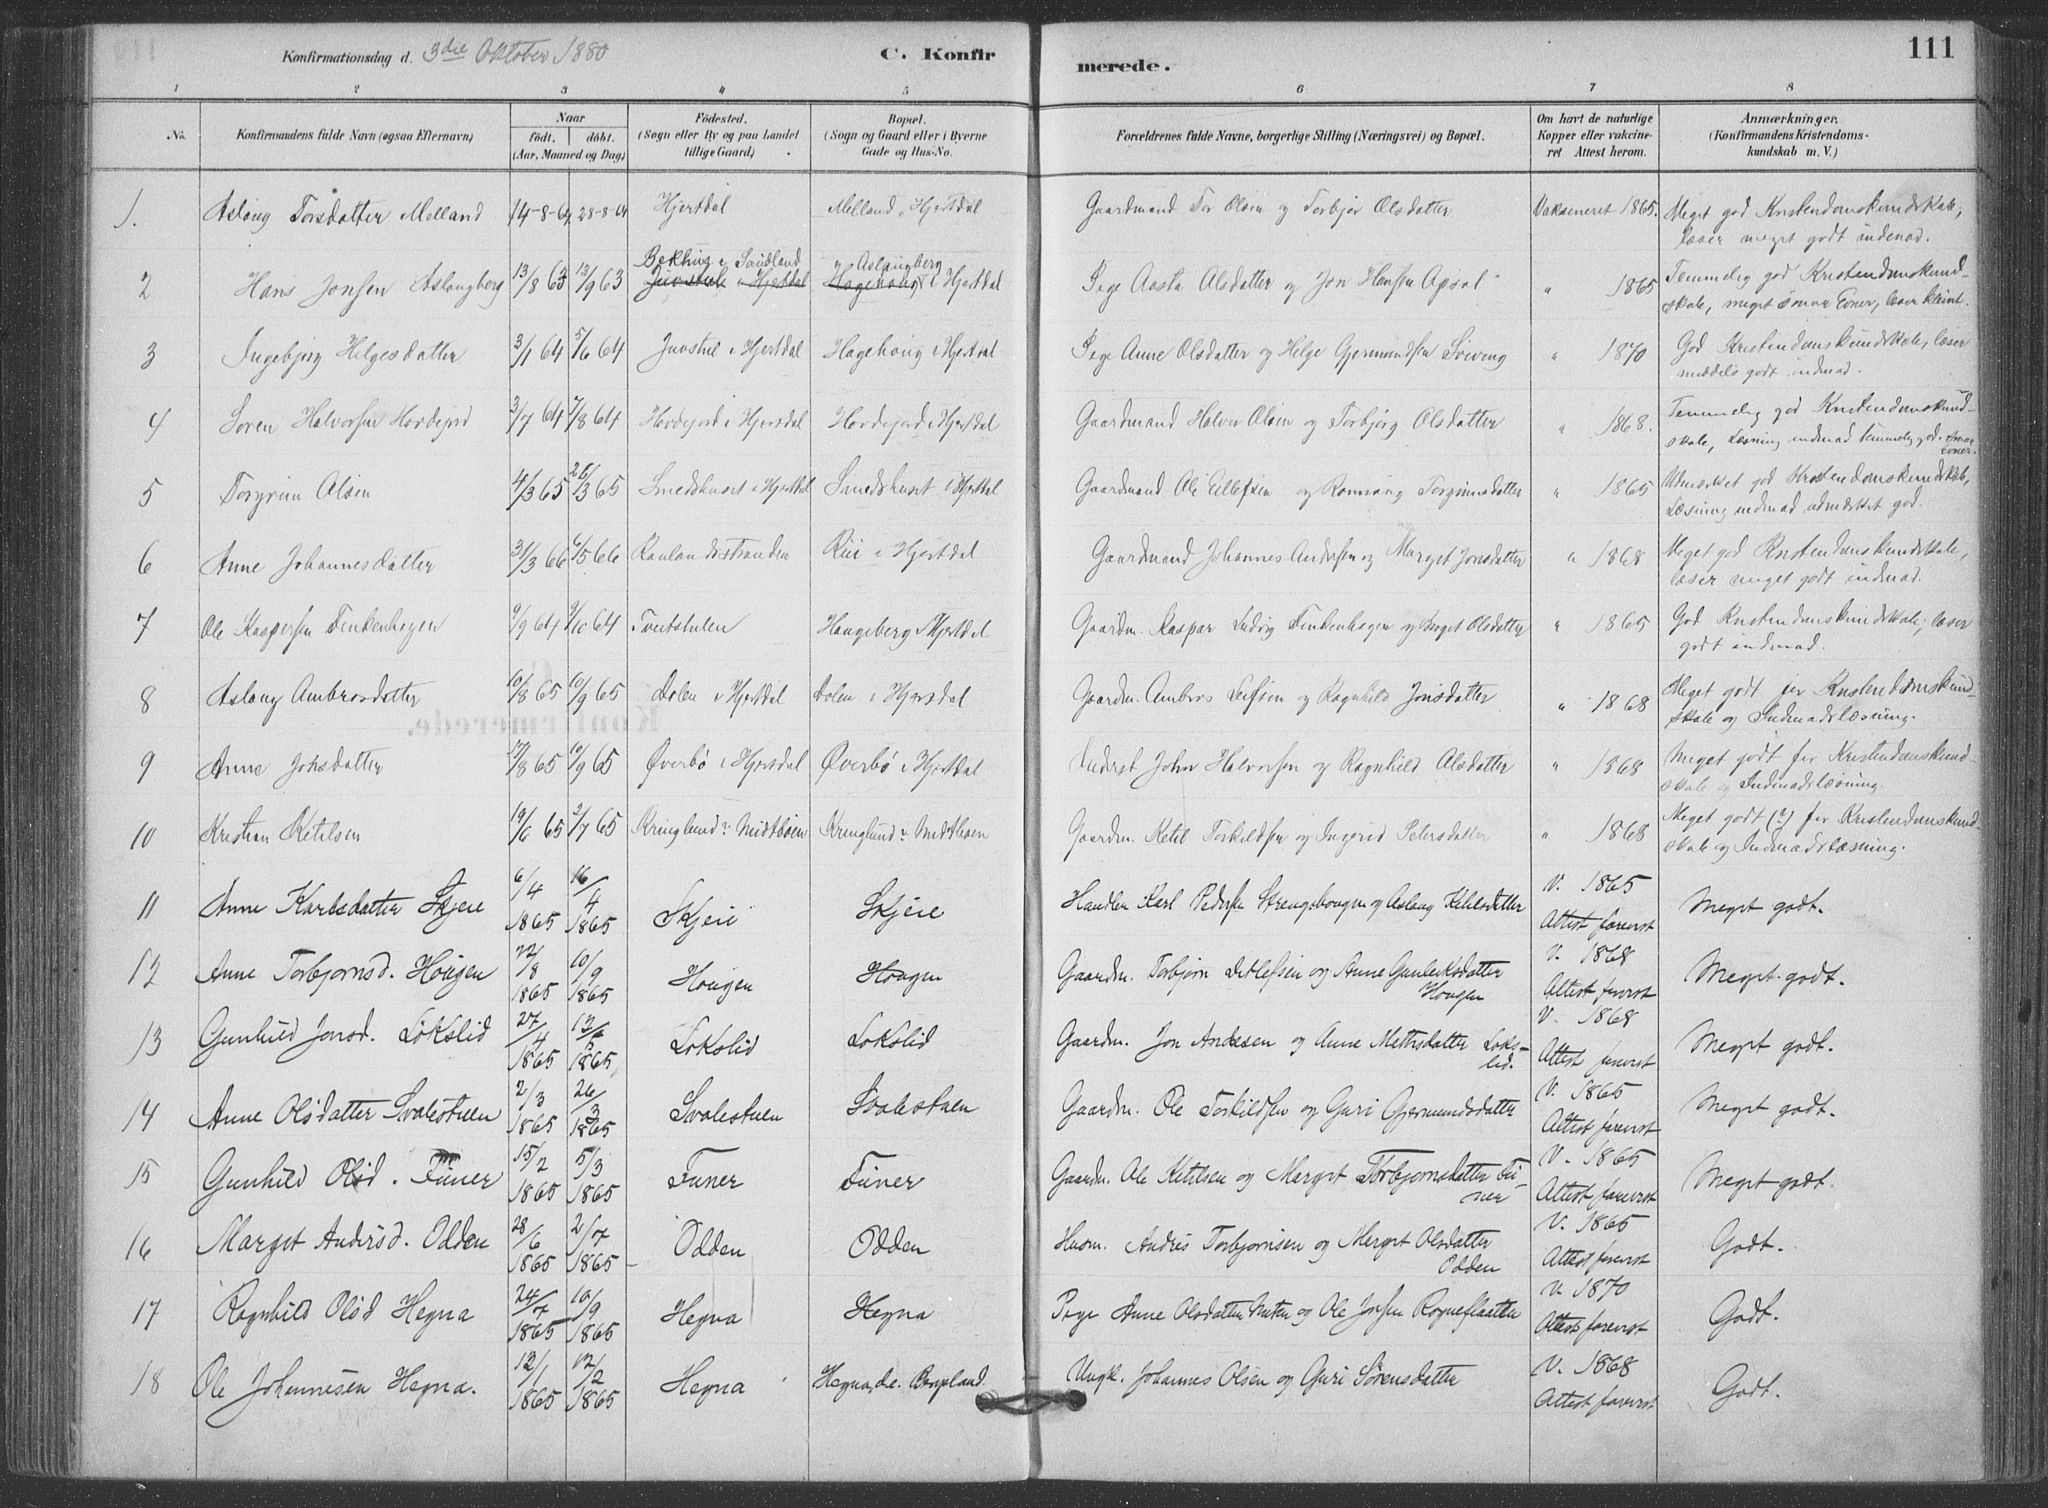 Konfirmationsdag d. 3die Oktober 1880 C. Konfirmerede. 111
1 2 3 4 5 6 7 8
No. Konfirmandens fulde Navn (ogsaa Efternavn) Naar født, døbt. (Aar, Maaned og Dag) Fødested. (Sogn eller By og paa Landet tillige Gaard) Bopæl. (Sogn og Gaard eller i Byerne Gade og Hus-No. Forældrenes fulde Navne, borgerlige Stilling (Næringsvei) og Bopæl. Om havt de naturlige Kopper eller vakcineret Attest herom. Anmærkninger. (Konfirmandens Kristendomskundskab m. V.)
1. Aslaug Torsdatter Melland 14-8-64 28-8-64 Hjertdal Melland i Hjertdal Gaardmand Tor Olsen og Torbjør Olsdatter Vaksineret 1865. Meget god Kristendomskundskab, læser meget godt indenad.
2 Hans Jonsen Aslaugberg 13/8 63 13/9 63 Bekhus i Saudland Juvstul i Hjertdal Aslaugberg Hagehaug i Hjertdal Pige Aasta Olsdatter og Jon Hansen Apsal " 1865 Temmelig god Kristendomskundskab, meget smaa Evner, læser kleint.
3 Ingebjørg Helgesdatter 3/1 64 5/6 64 Juvstul i Hjertdal Hagehaug i Hjertdal Pige Anne Olsdatter og Helge Gjermundsen Sveving " 1870 God Kristendomskundskab, læser middels godt indenad.
4 Søren Halvorsen Hovdejord 3/7 64 7/8 64 Hovdejord i Hjertdal Hovdejord i Hjertdal Gaardmand Halvor Olsen og Torbjørg Olsdatter " 1868. Temmelig god Kristendomskundskab, Læsning indenad temmelig god. Smaa Evner.
5 Torgrim Olsen 4/3 65 26/3 65 Smedshuset i Hjertdal Smedshuset i Hjertdal Gaardmand Ole Eilefsen og Rønnaug Torgrimsdatter " 1865 Udmærket god Kristendomskundskab, Læsning indenad udmærket god.
6 Anne Johannesdatter 31/3 66 6/5 66 Raulandsstranden Rui i Hjertdal Gaardmand Johannes Andersen og Marget Jonsdatter " 1868 Meget god Kristendomskundskab, læser meget godt indenad.
7 Ole Kaspersen Finkenhagen 9/9 64 9/10 64 Tveitstulen Haugeberg i Hjertdal Gaardm. Kaspar Ludvig Finkenhagen og Birget Olsdatter " 1865 God Kristendomskundskab, læser godt indenad.
8 Aslaug Ambrosdatter 10/8 65 10/9 65 Dolen i Hjertdal Dolen i Hjertdal Gaardm. Ambros Leifsen og Ragnhild Jonsdatter " 1868 Meget godt for Kristendomskundskab og Indenadslæsning.
9 Anne Johsdatter 17/8 65 10/9 65 Øverbø i Hjertdal Øverbø i Hjertdal Inderst John Halvorsen og Ragnhild Olsdatter " 1868 Meget godt for Kristendomskundskab og Indenadslæsning.
10 Kristian Ketilsen 19/6 65 2/7 65 Kringlund i Midtbøen Kringlund i Midtbøen Gaardm. Ketil Torkildsen og Ingerid Petersdatter " 1868 Meget godt (?) for Kristendomskundskab og Indenadslæsning.
11 Anne Karlsdatter Skjeie 6/4 1865 16/4 1865 Skjeie Skjeie Handler Karl Pedersen Strengshougen og Aslaug Ketilsdatter V. 1865 Attest forevist Meget godt.
12 Anne Torbjørnsd. Hougen 22/8 1865 10/9 1865 Hougen Hougen Gaardm. Torbjørn Detlefsen og Anne Gunleiksdatter Hougen V. 1868 Attest forevist Meget godt.
13 Gunhild Jonsd. Løkslid 27/4 1865 13/5 1865 Løkslid Løkslid Gaardm. Jon Andesen og Anne Methisdatter Løkslid. V. 1868 Attest forevist Meget godt.
14 Anne Olsdatter Svalestuen 2/3 1865 26/3 1865 Svalestuen Svalestuen Gaardm. Ole Torkildsen og Guri Gjermundsdatter V. 1865 Attest forevist Meget godt.
15 Gunhild Olsd. Tuner 15/2 1865 5/3 1865 Tuner Tuner Gaardm. Ole Ketilsen og Marget Torbjørnsdatter Tuner V. 1865 Attest forevist Meget godt.
16 Marget Andersd. Odden 28/6 1865 2/7 1865 Odden Odden Husm. Andris Torbjørnsen og Merget Olsdatter Odden V. 1865 Attest forevist Godt.
17 Ragnhild Olsd Hegna 24/7 1865 10/9 1865 Hegna Hegna Pige Anne Olsdatter og Ole Jonsen Rogneflaatten V. 1870 Attest forevist Godt.
18 Ole Johannesen Hegna. 12/1 1865 12/2 1865 Hegna Hegna, d.e. Bergeland. Ungk. Johannes Olsen og Guri Sørensdatter V. 1868 Attest forevist Godt.